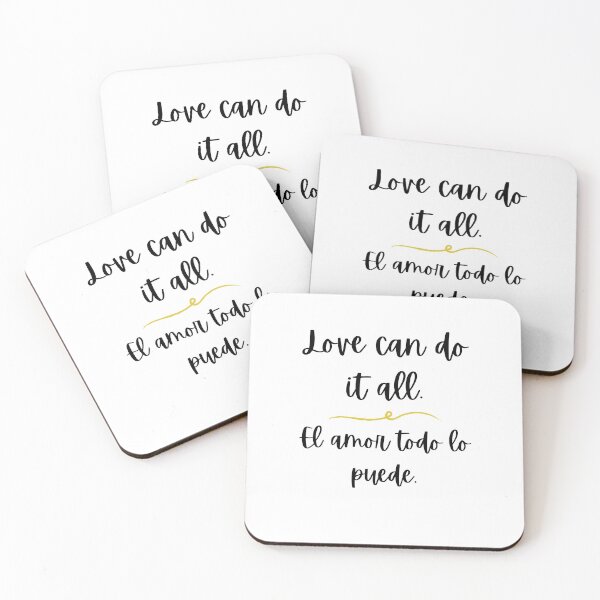 Love can do
it all.
do lo
Love can do
it all.
El amor todo lo
puede.
Love can do
it all.
El amor todo
puede.
Love can do
it all.
El amor todo lo
puede.